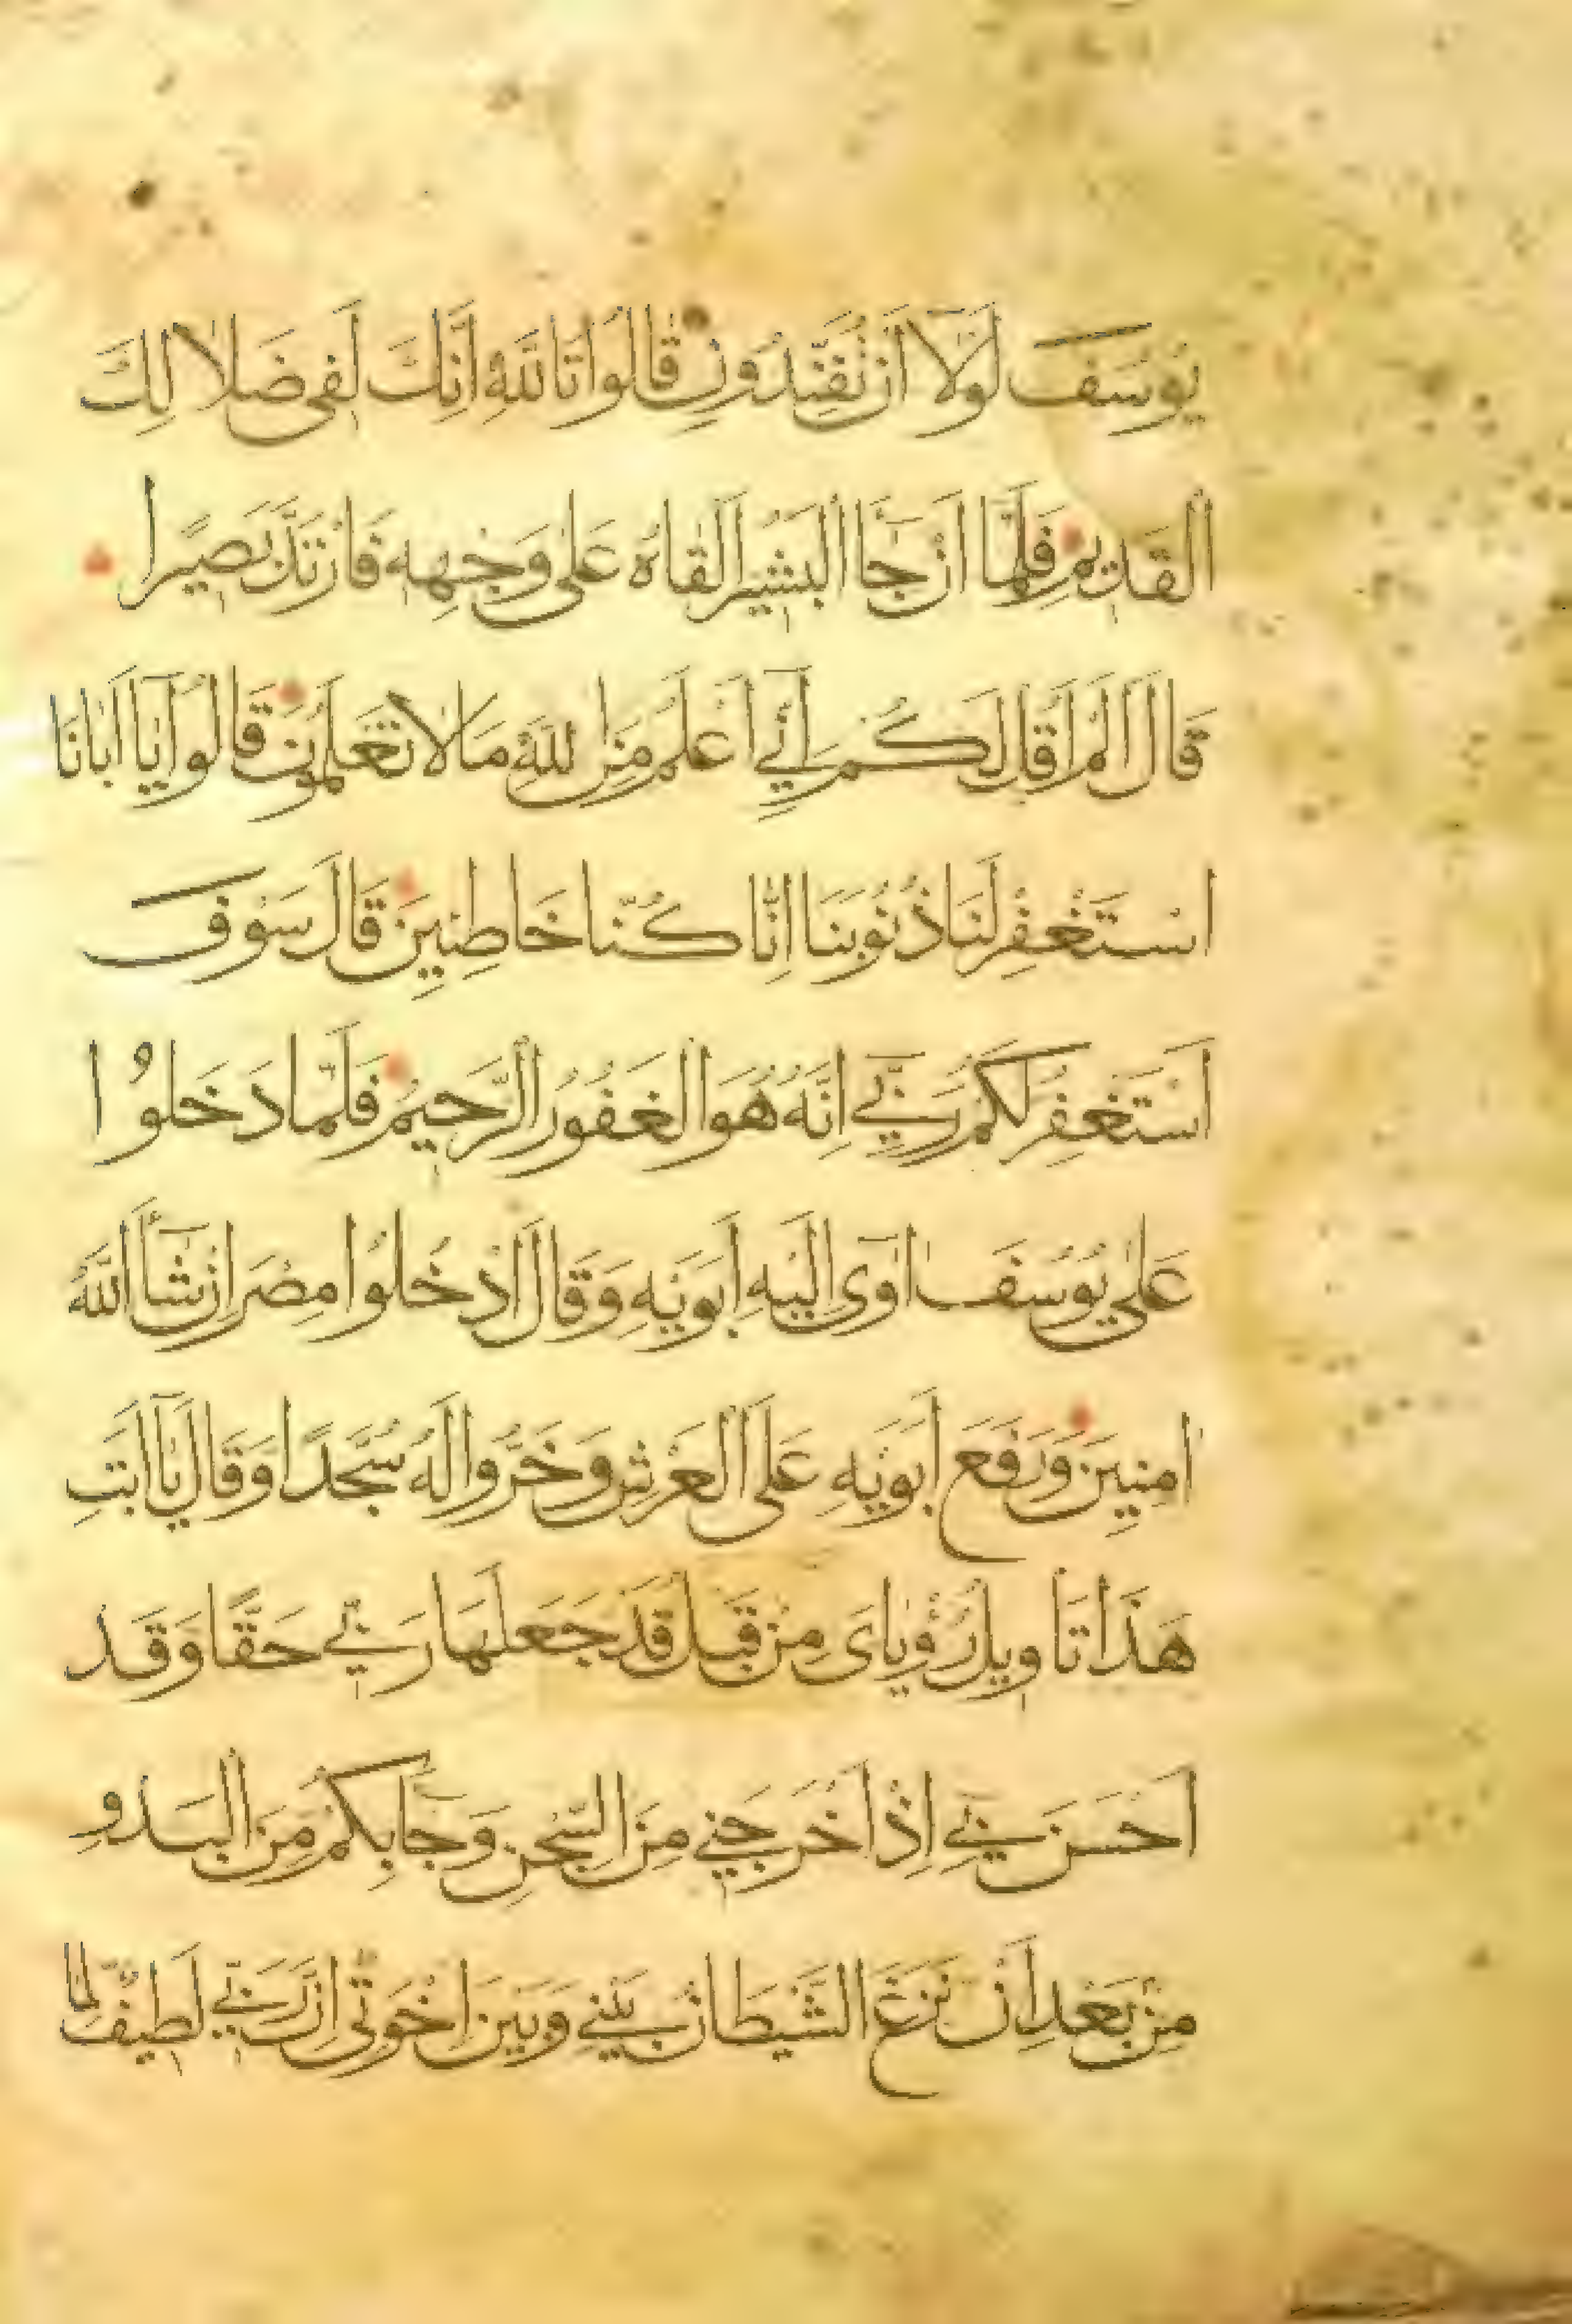 يُوسُفَ لَوْلَا اَنْ تُفَنِّدُونِ قَالُوا تَاللّٰهِ اِنَّكَ لَفِى ضَلَا لِكَ
الْقَدِيمِ فَلَمَّا اَنْ جَٓا الْبَشِيرُ اَلْقَاهُ عَلٰى وَجْهِهِ فَارْتَدَّ بَصِيرًا
قَالَ اَلَمْ اَقُلْ لَكُمْ اِنِّٓى اَعْلَمُ مِنَ اللّٰهِ مَا لَا تَعْلَمُونَ قَالُوا يَٓا اَبَانَا
اسْتَغْفِرْ لَنَا ذُنُوبَنَا اِنَّا كُنَّا خَاطِئِينَ قَالَ سَوْفَ
اَسْتَغْفِرُ لَكُمْ رَبِّٓى اِنَّهُ هُوَ الْغَفُورُ الرَّحِيمُ فَلَمَّا دَخَلُوا
عَلٰى يُوسُفَ اٰوٰٓى اِلَيْهِ اَبَوَيْهِ وَقَالَ ادْخُلُوا مِصْرَ اِنْ شَٓأَ اللّٰهُ
اٰمِنِينَ وَرَفَعَ اَبَوَيْهِ عَلَى الْعَرْشِ وَخَرُّوا لَهُ سُجَّدًا وَقَالَ يَٓا اَبَتِ
هٰذَا تَاْوِيلُ رُؤْيَاىَ مِنْ قَبْلُ قَدْ جَعَلَهَا رَبِّى حَقًّا وَقَدْ
اَحْسَنَ بِٓى اِذْ اَخْرَجَنِى مِنَ السِّجْنِ وَجَٓا بِكُمْ مِنَ الْبَدْوِ
مِنْ بَعْدِ اَنْ نَزَغَ الشَّيْطَانُ بَيْنِى وَبَيْنَ اِخْوَتِٓى اِنَّ رَبِّى لَطِيفٌ لِمَا